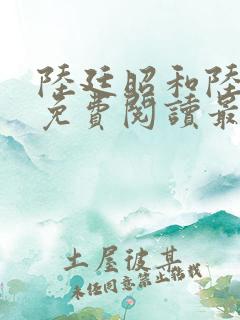 陸廷昭和陸
免費閱讀最
土屋彼某
未任同意禁止转载